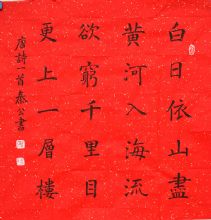 白日依山盡
黃河入海流
欲窮千里目
更上一層樓
唐詩一首 泰公書